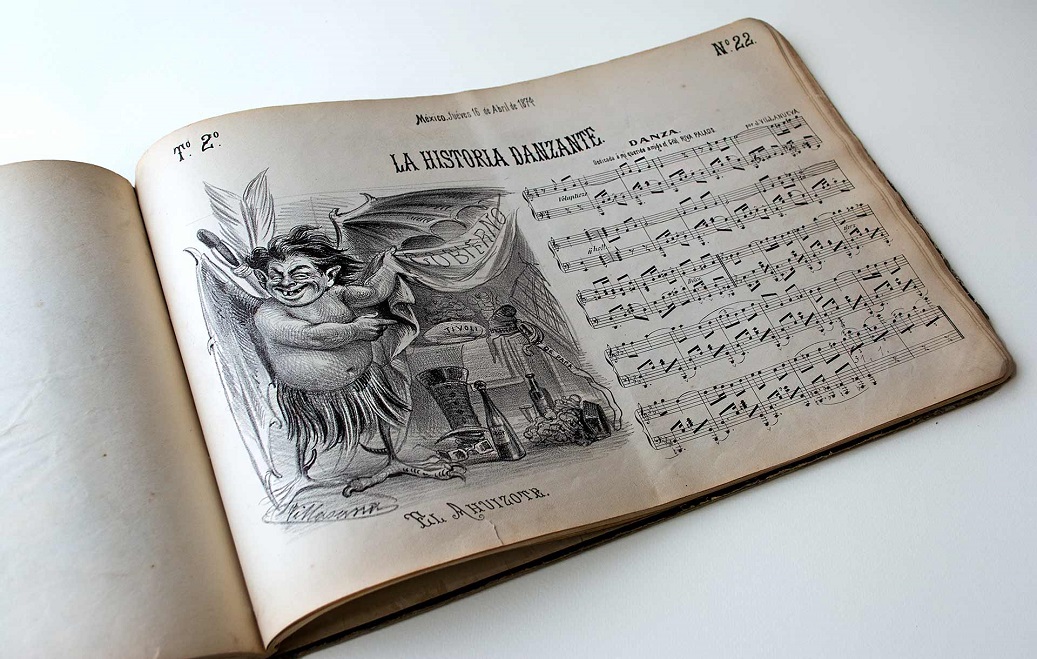 To. 2o
No. 22.
México. Juéves 16 de Abril de 1874
LA HISTORIA DANZANTE.
DANZA.
por J. VILLANUEVA
Dedicada á mi querido amigo el Gral. RIVA PALACIO
TIVOLI
Villasana
EL AHUIZOTE.